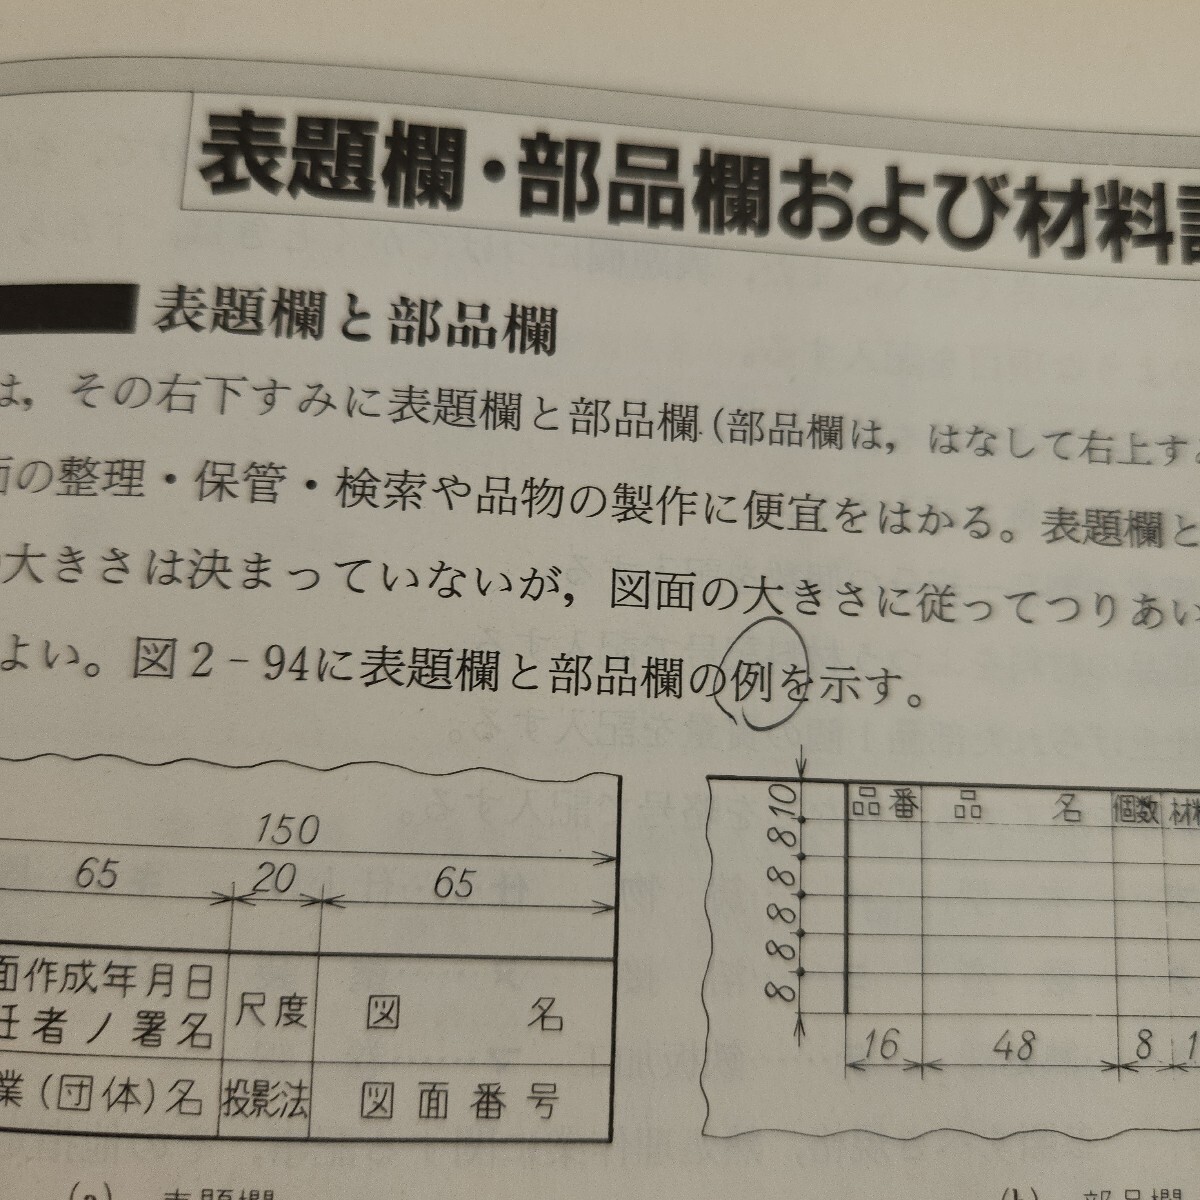 表題欄・部品欄および材料
表題欄と部品欄
は，その右下すみに表題欄と部品欄（部品欄は，はなして右上す
面の整理・保管・検索や品物の製作に便宜をはかる。表題欄と
大きさは決まっていないが，図面の大きさに従ってつりあい
よい。図2-94に表題欄と部品欄の例を示す。
150
65 20 65
面作成年月日
任者ノ署名
尺度 図 名
業(団体)名 投影法 図面番号
10 8 8 8 8 8
品番 品 名 個数 材料
16 48 8 1
(a) 表題欄
(b) 部品欄